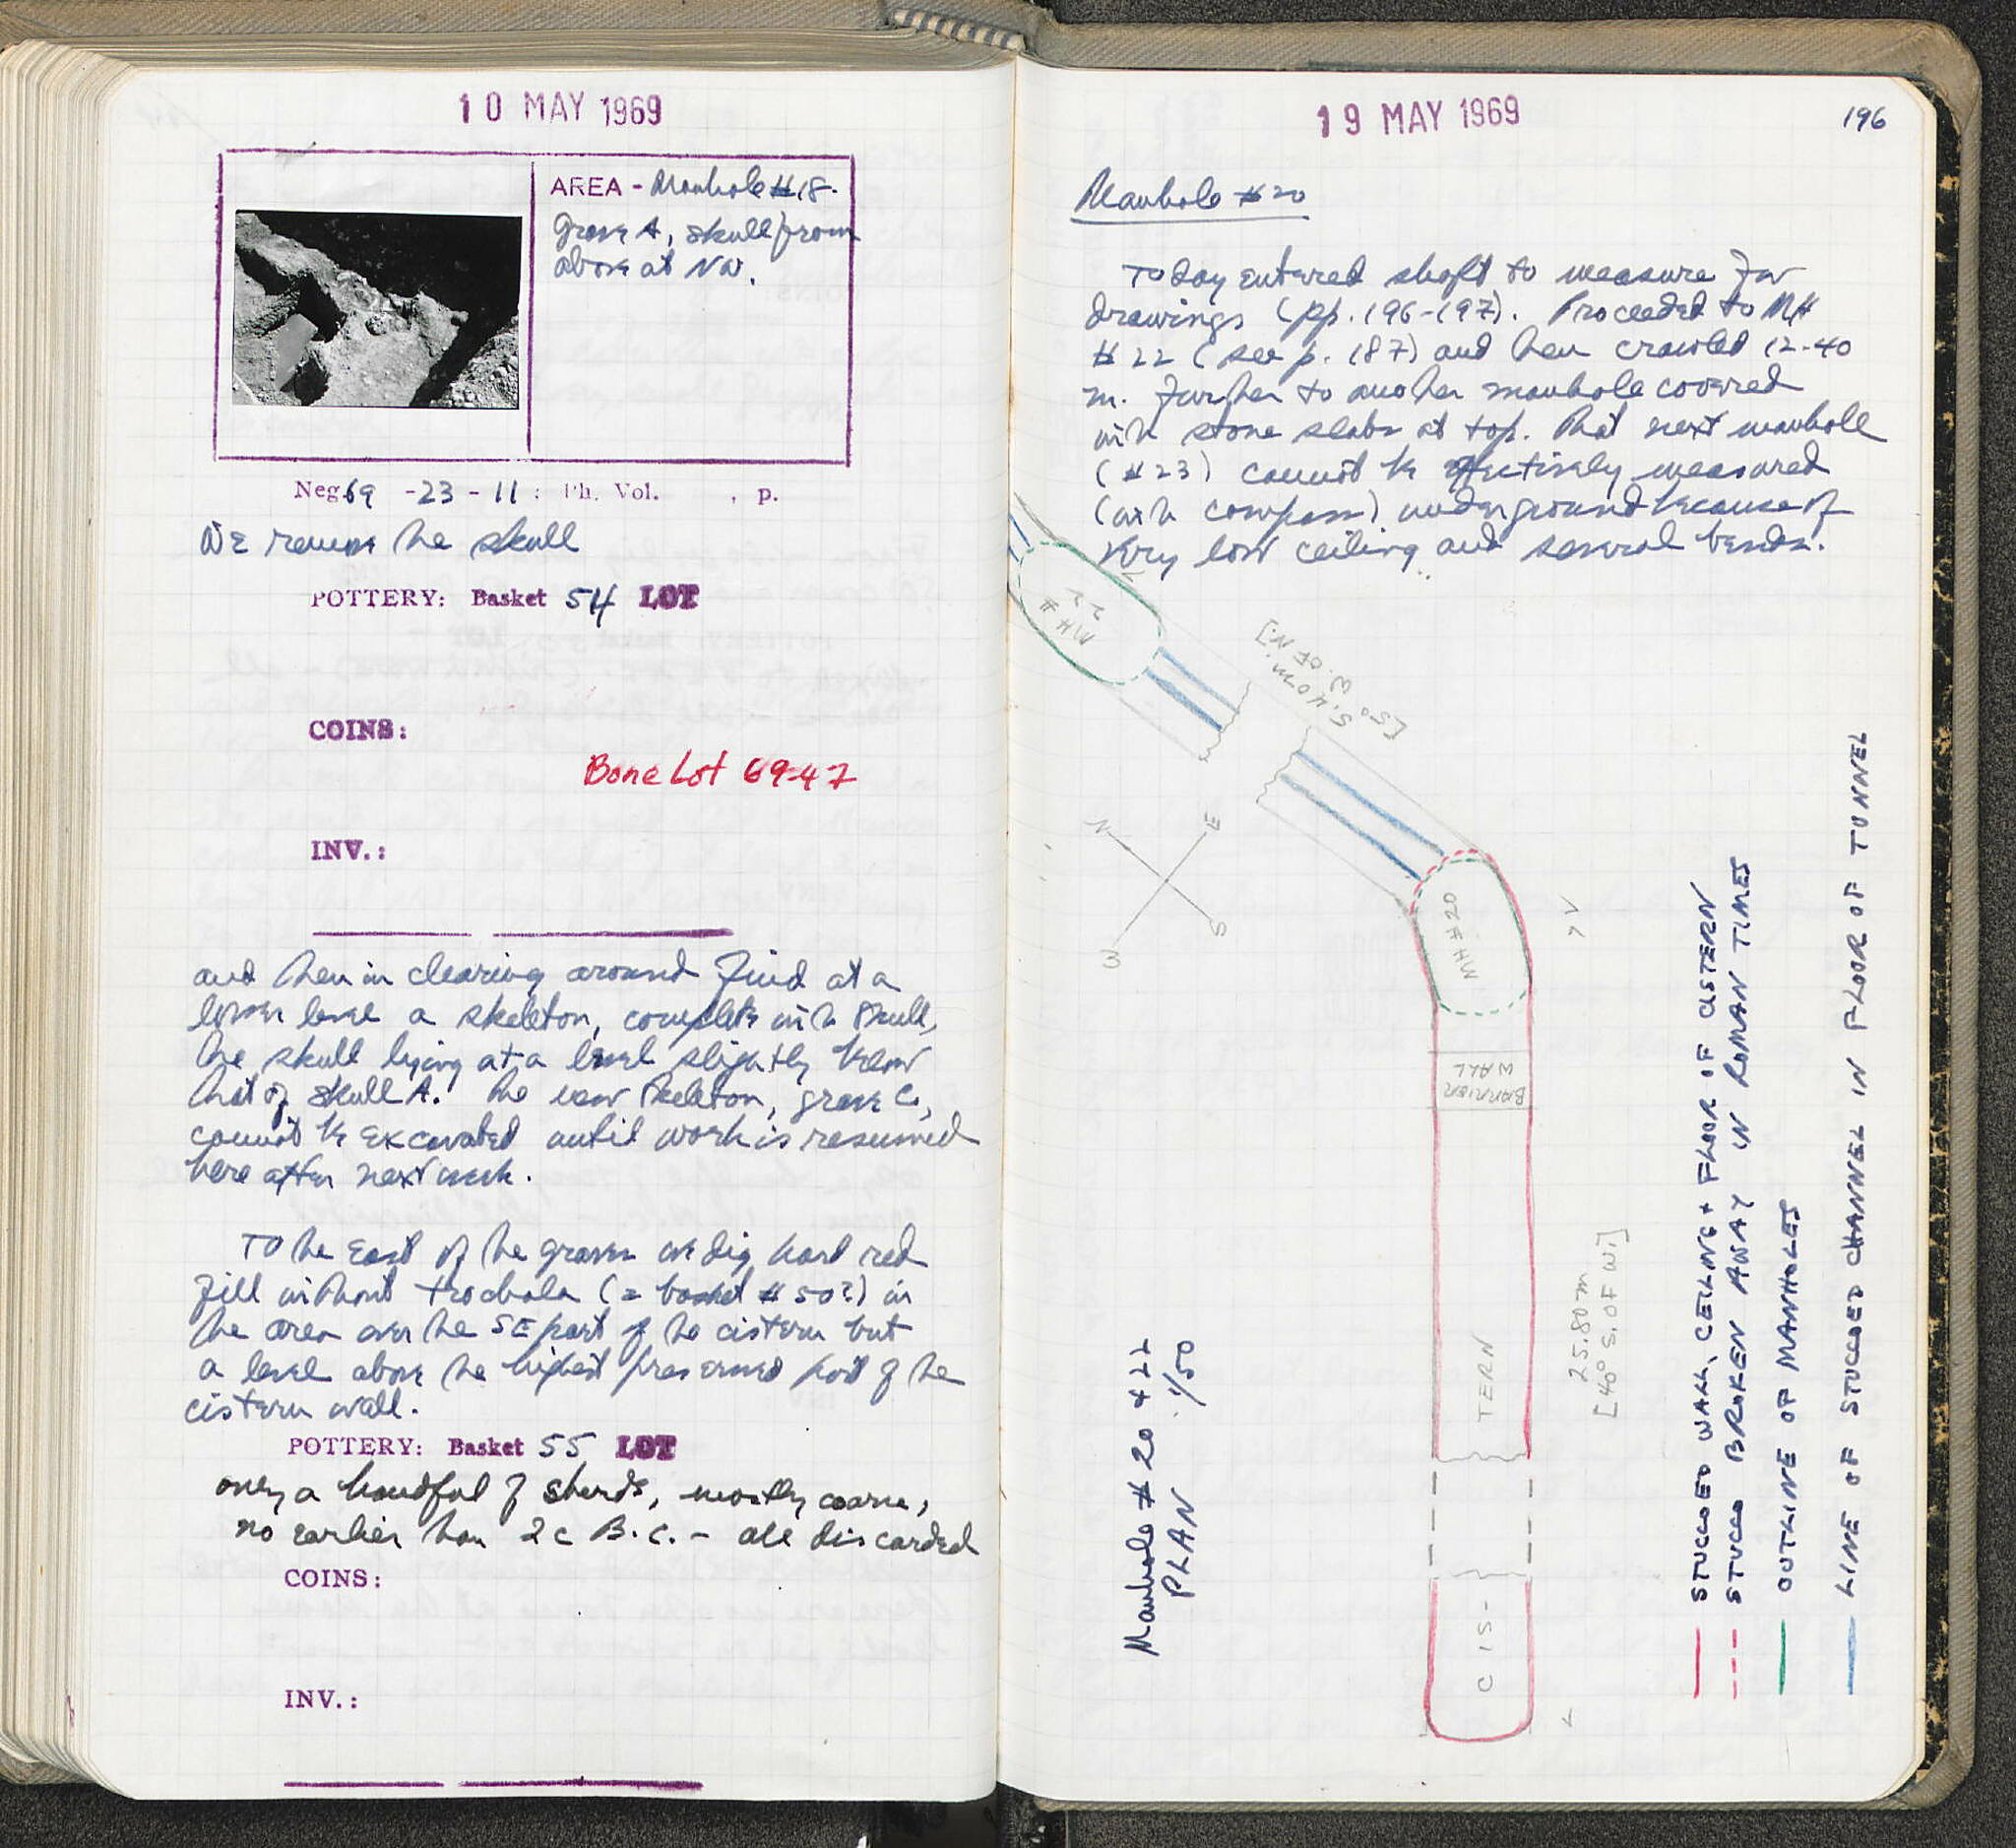 10 MAY 1969
AREA - Manhole #18.
Grave A, skull from
above at NW.
Neg. 69 -23 - 11 : Ph. Vol. , p.
We remove the skull
POTTERY: Basket 54 LOT
COINS:
Bone Lot 69-47
INV.:
and then in clearing around find at a
lower level a skeleton, complete with skull,
the skull lying at a level slightly below
that of skull A. The new skeleton, grave C,
cannot be excavated until work is resumed
here after next week.
To the East of the graves we dig hard red
fill without trochala (= basket #50?) in
the area over the SE part of the cistern but
a level above the highest preserved part of the
cistern wall.
POTTERY: Basket 55 LOT
only a handful of sherds, mostly coarse,
no earlier than 2c B.C. - all discarded
COINS:
INV.:
19 MAY 1969
196
Manhole #20
Today entered shaft to measure for
drawings (pp. 196-197). Proceeded to MH
#22 (see p. 187) and then crawled 12.40
m. further to another manhole covered
with stone slabs at top. That next manhole
(#23) cannot be effectively measured
(with compass) underground because of
very low ceiling and several bends.
MH #
22
5.40 m.
[50° W. OF N.]
N
E
S
W
MH #20
BARRIER
WALL
CIS-
TERN
25.80 m
[40° S. OF W.]
Manhole #20 + 22
PLAN 1/50
STUCCOED WALL, CEILING + FLOOR OF CISTERN
STUCCO BROKEN AWAY IN ROMAN TIMES
OUTLINE OF MANHOLES
LINE OF STUCCOED CHANNEL IN FLOOR OF TUNNEL